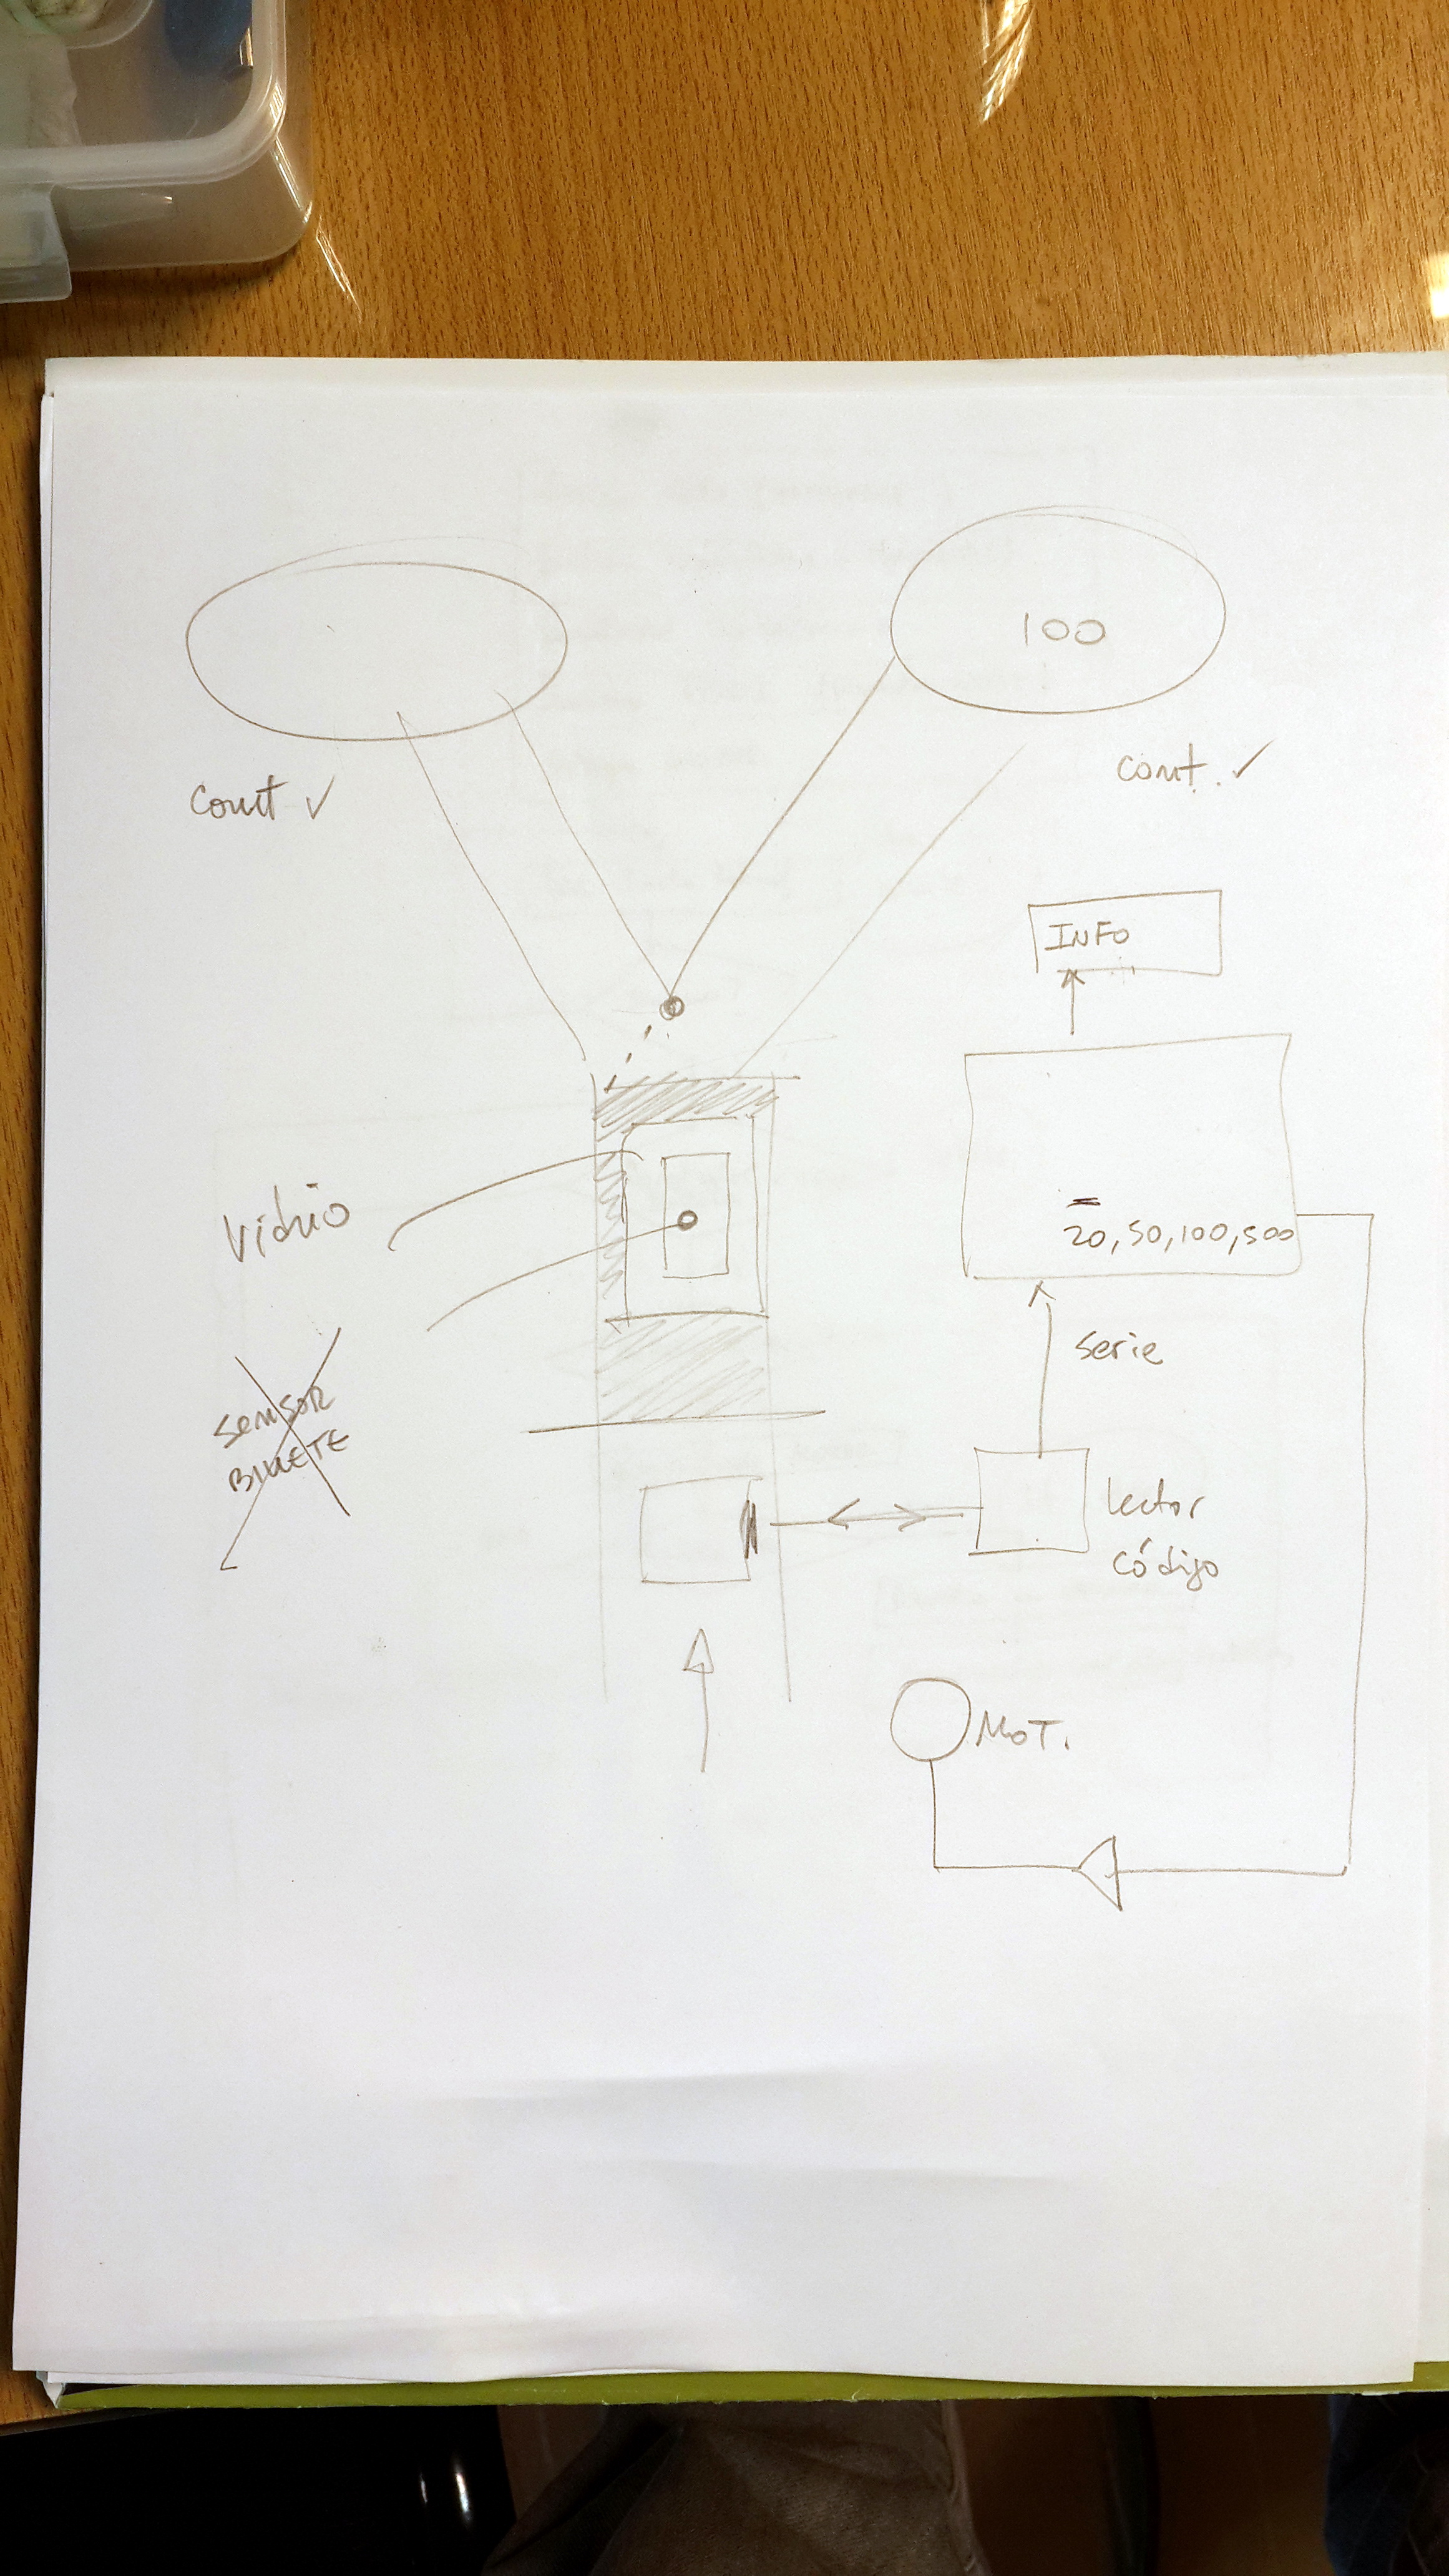 100
cont ✓
cont. ✓
INFO
Vidrio
20, 50, 100, 500
serie
SENSOR
BILLETE
lector
código
MOT.